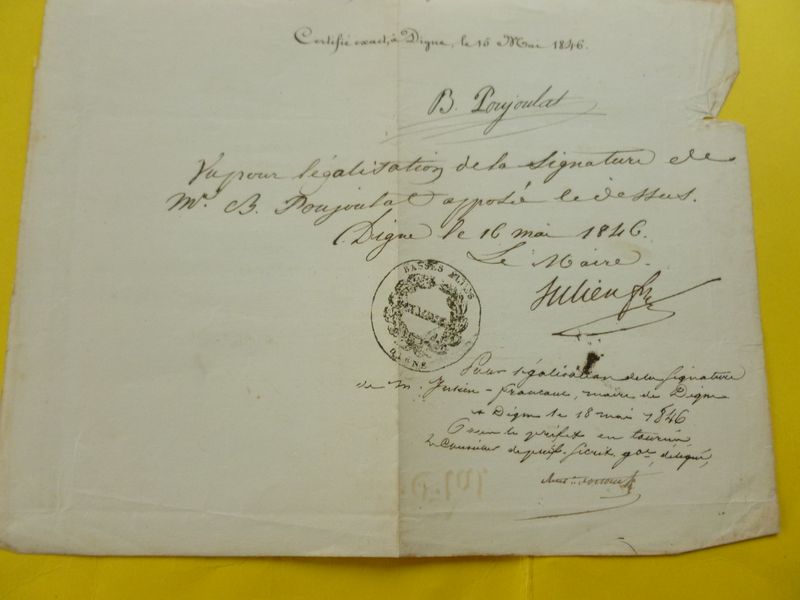 Certifié exact, à Digne, le 15 Mai 1846.
B. Poujoulat
Vu pour légalisation de la signature de
Mr. B. Poujoulat apposée ci dessus.
Digne le 16 mai 1846.
Le Maire.
Julien fr
BASSES ALPES
MAIRIE
DIGNE
Pour légalisation de la signature
de M. Julien-francoul, maire de Digne
à Digne le 18 mai 1846
Pour le préfet en tournée,
Le Conseiller de préf. Secret. gal. délégué,